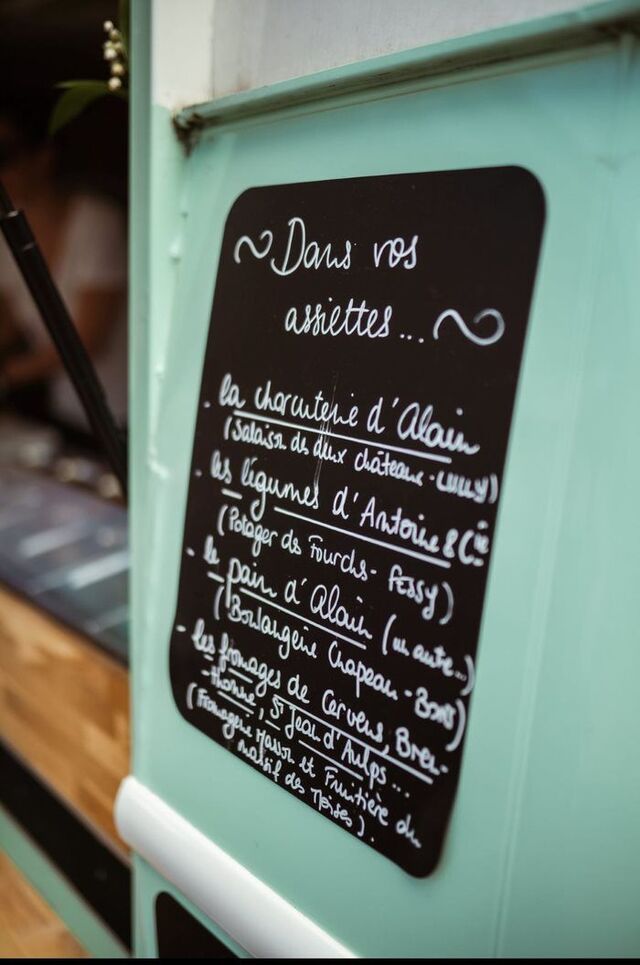 ~ Dans vos
assiettes... ~
- la charcuterie d'Alain
(Salaison des deux châteaux - LULLY)
- les légumes d'Antoine & Cie
(Potager des Fourches - FESSY)
- le pain d'Alain (un autre...)
(Boulangerie Chapeau - BONS)
- les fromages de Cervens, Breu-
-thonne, St Jean d'Aulps...
(Fromagerie et Fruitière du
massif des Moises).